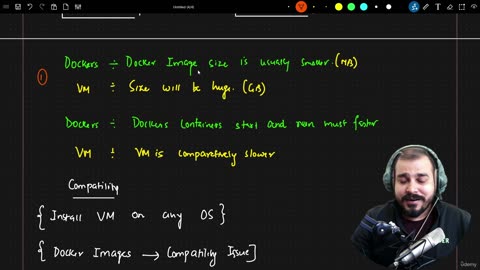 Untitled
① Dockers ÷ Docker Image size is usually smaller. (MB)
VM ÷ Size will be huge. (GB)
Dockers ÷ Dockers Containers start and run must faster
VM ÷ VM is comparatively slower
Compatility
{ Install VM on any OS }
{ Docker Images → Compatility Issue]
Udemy